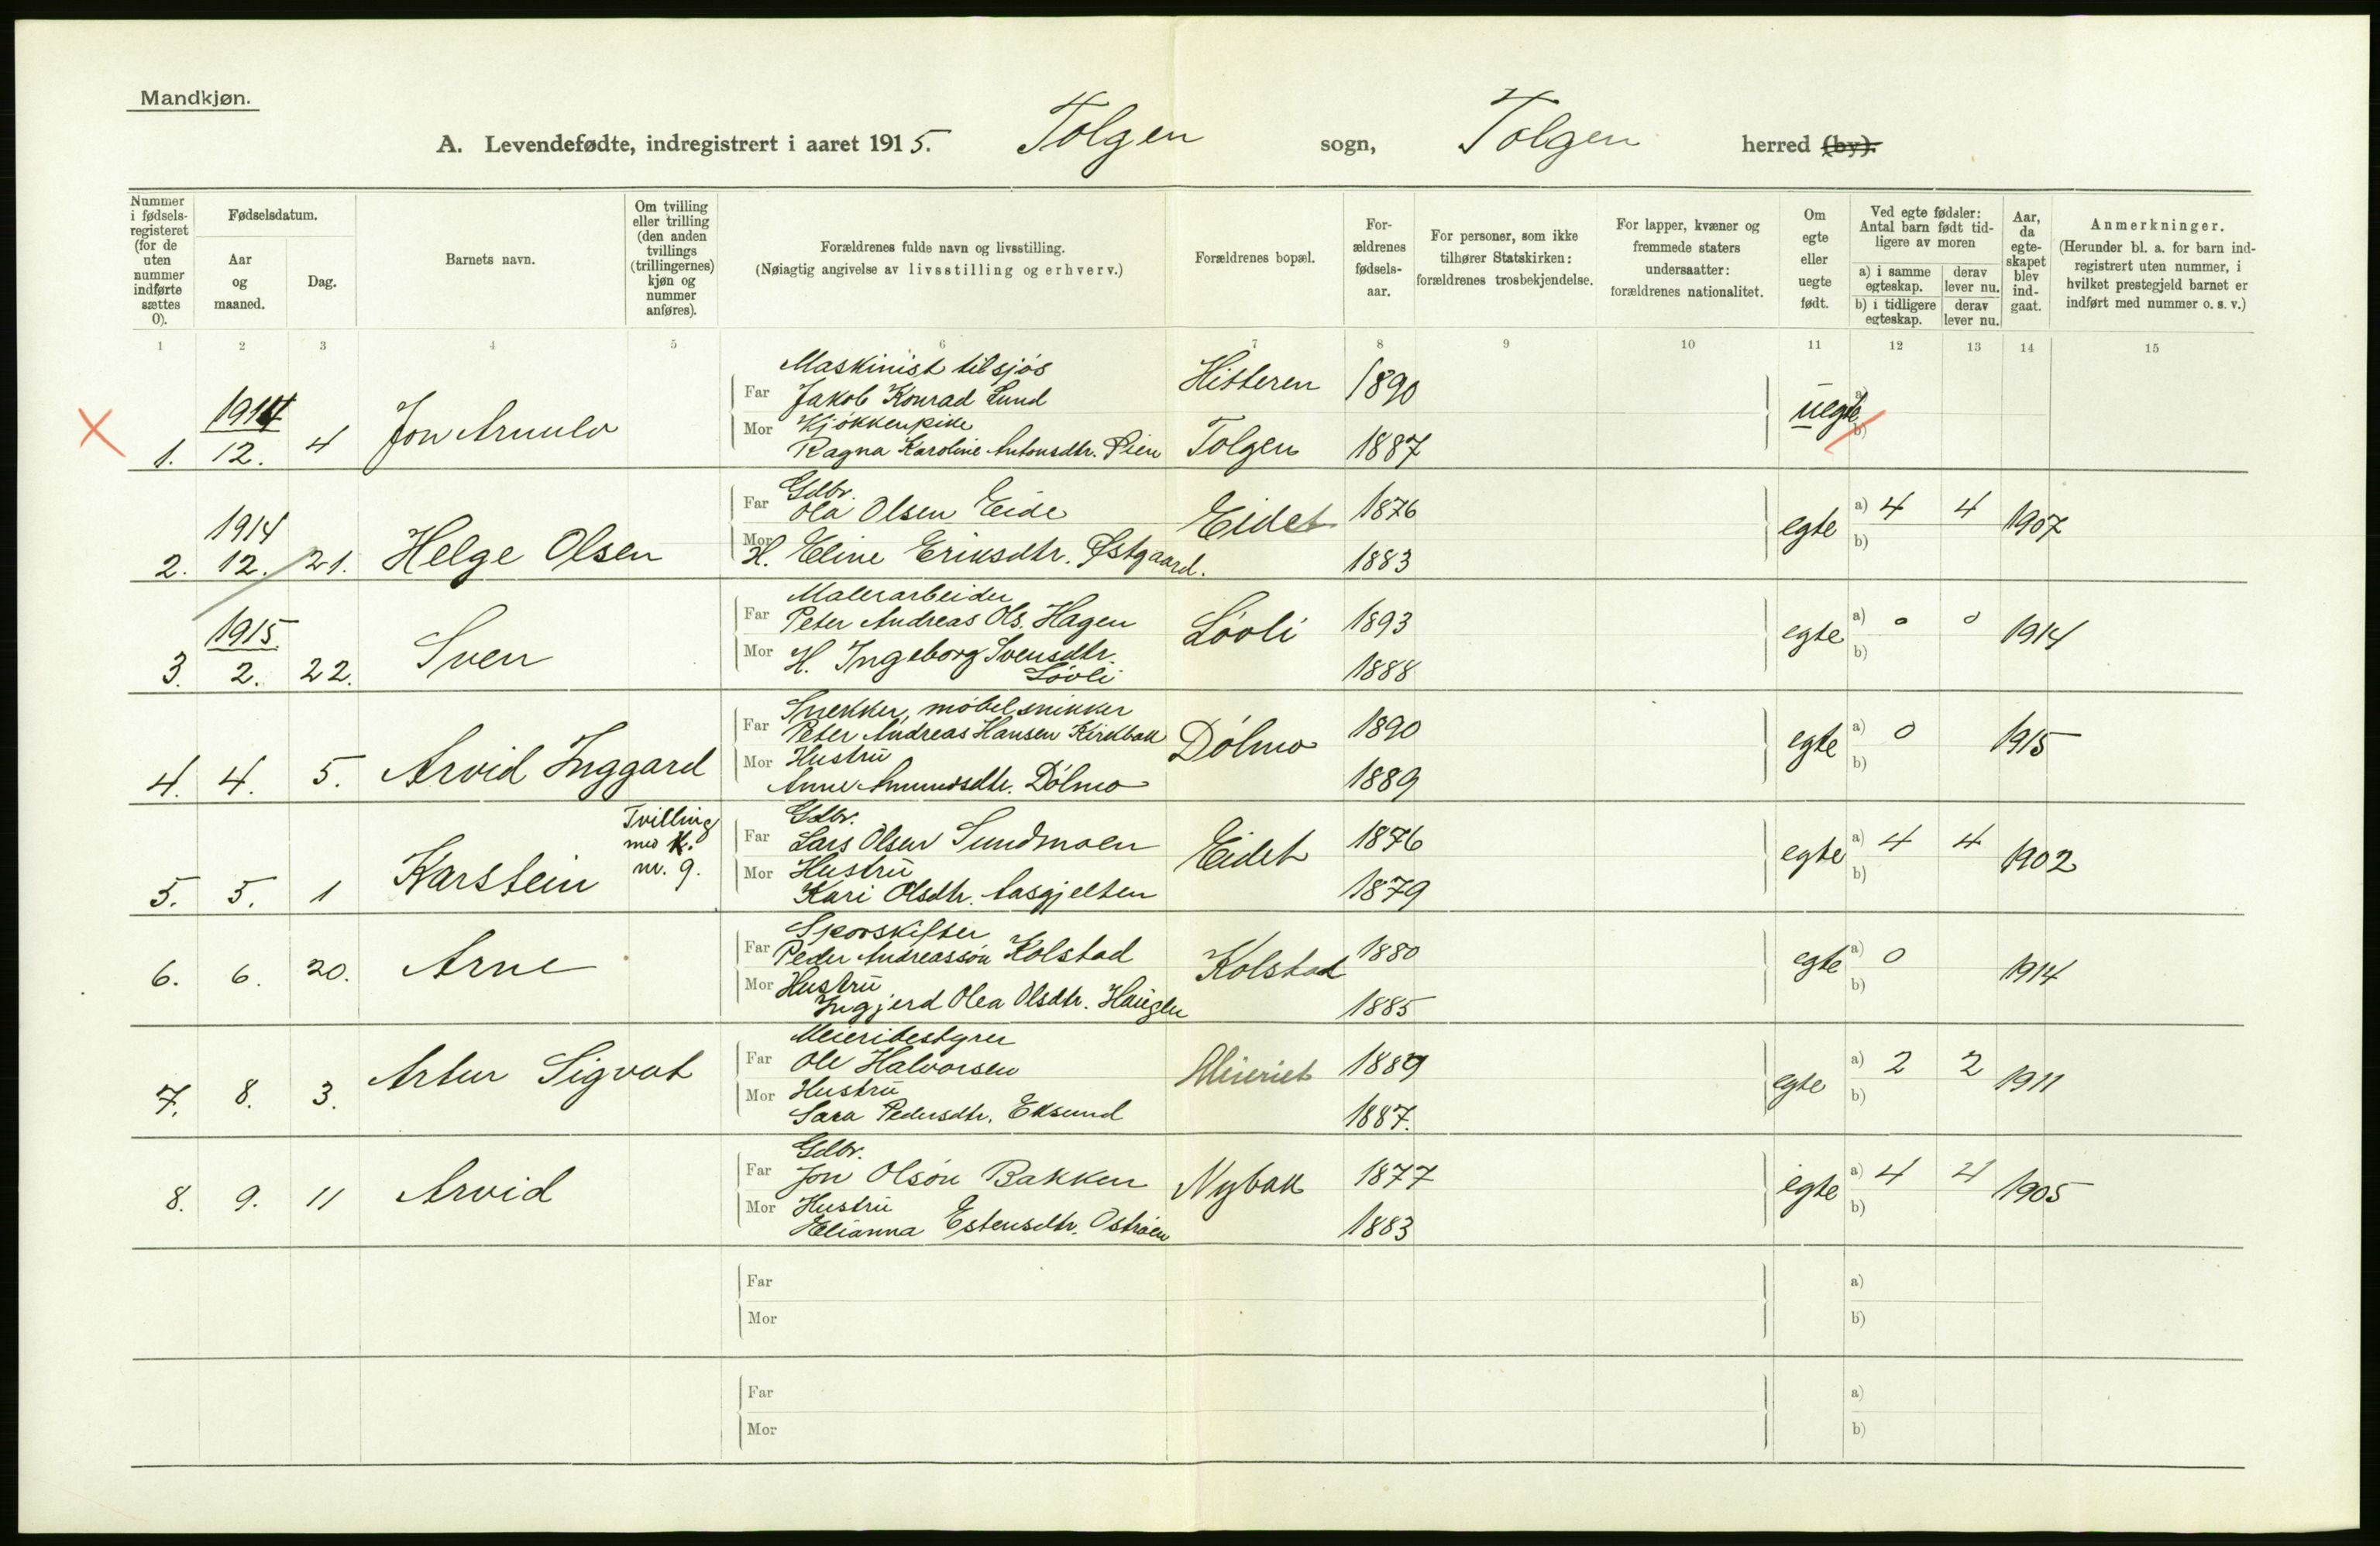 Mandkjøn.
A. Levendefødte, indregistrert i aaret 1915. Tolgen sogn, Tolgen herred (by).
Nummer i fødsels-registeret (for de uten nummer indførte sættes 0).
Fødselsdatum.
Aar og maaned.
Dag.
Barnets navn.
Om tvilling eller trilling (den anden tvillings (trillingernes) kjøn og nummer anføres).
Forældrenes fulde navn og livsstilling.
(Nøiagtig angivelse av livsstilling og erhverv.)
Forældrenes bopæl.
For-ældrenes fødsels-aar.
For personer, som ikke tilhører Statskirken: forældrenes trosbekjendelse.
For lapper, kvæner og fremmede staters undersaatter: forældrenes nationalitet.
Om egte eller uegte født.
Ved egte fødsler: Antal barn født tid-ligere av moren
a) i samme egteskap. derav lever nu.
b) i tidligere egteskap. derav lever nu.
Aar, da egte-skapet blev ind-gaat.
Anmerkninger.
(Herunder bl. a. for barn ind-registrert uten nummer, i hvilket prestegjeld barnet er indført med nummer o. s. v.)
1 2 3 4 5 6 7 8 9 10 11 12 13 14 15
Maskinist tilsjøs
1914 Far Jakob Konrad Lund Hitteren 1890 uegte a)
Mor Kjøkkenpike b)
1. 12. 4 Jon Arnulv Ragna Karoline Antonsdtr. Lien Tolgen 1887
Gdbr.
1914 Far Ola Olsen Eide Eidet 1876 egte a) 4 4 1907
2. 12. 21. Helge Olsen Mor H. Eline Eriksdtr. Østgaard. 1883 b)
Malerarbeider
1915 Far Peter Andreas Ols. Hagen Løvli 1893 egte a) 0 0 1914
3. 2. 22. Sven Mor H. Ingeborg Svensdtr. 1888 b)
Løvli
Snekker, møbelsnikker
Far Peter Andreas Hansen Kirkbak Dølmo 1890 egte a) 0 1915
Mor Hustru b)
4. 4. 5. Arvid Inggard Anne Amundsdtr. Dølmo 1889
Tvilling med K. nr. 9.
Gdbr.
Far Lars Olsen Sundmoen Eidet 1876 egte a) 4 4 1902
Mor Hustru b)
5. 5. 1 Karstein Kari Olsdtr. Aasgjelten 1879
Sporskifter
Far Peder Andreassøn Kolstad Kolstad 1880 egte a) 0 1914
6. 6. 20. Arne Mor Hustru b)
Ingjerd Olea Olsdtr. Haugen 1885
Meieribestyrer
Far Ole Halvorsen Meieriet 1889 egte a) 2 2 1911
7. 8. 3. Artur Sigvat Mor Hustru b)
Sara Pedersdtr. Eksund 1887.
Gdbr.
Far Jon Olsøn Bakken Nybak 1877 egte a) 4 4 1905
8. 9. 11 Arvid Mor Hustru b)
Elianna Estensdtr. Østrøen 1883
Far a)
Mor b)
Far a)
Mor b)